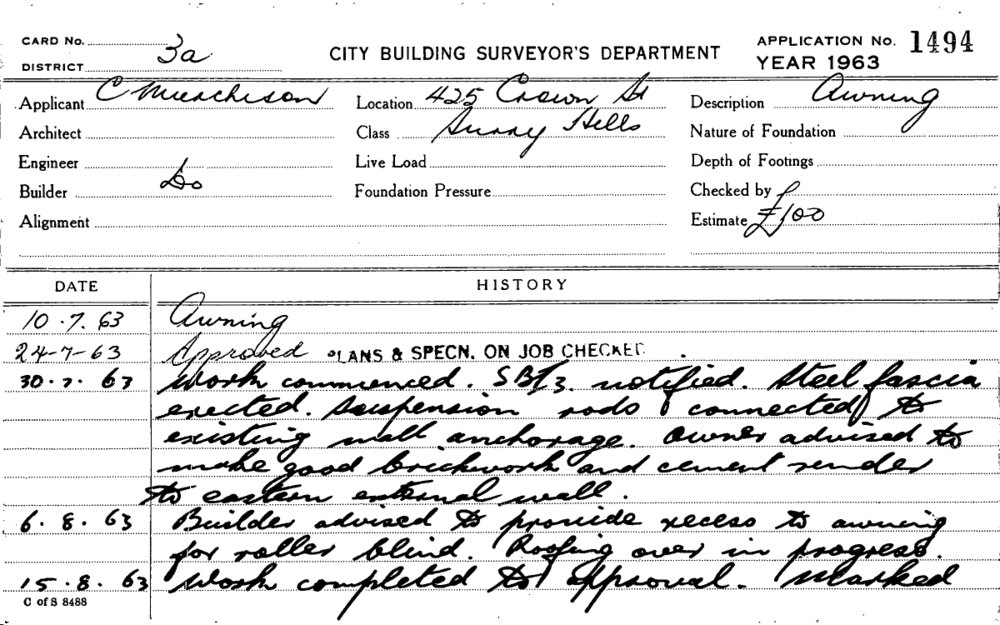 CARD No. CITY BUILDING SURVEYOR'S DEPARTMENT APPLICATION No. 1494
DISTRICT 3a YEAR 1963
Applicant C Murchison Location 425 Crown St Description Awning
Architect Class Surry Hills Nature of Foundation
Engineer Live Load Depth of Footings
Builder Do Foundation Pressure Checked by
Alignment Estimate £100
DATE HISTORY
10.7.63 Awning
24-7-63 Approved PLANS & SPECN. ON JOB CHECKED.
30.7.63 Work commenced. SB/3 notified. Steel fascia
erected. Suspension rods connected to
existing wall anchorage. Owner advised to
make good brickwork and cement render
to eastern external wall.
6.8.63 Builder advised to provide recess to awning
for roller blind. Roofing over in progress.
15.8.63 Work completed to approval. Marked
C of S 8488